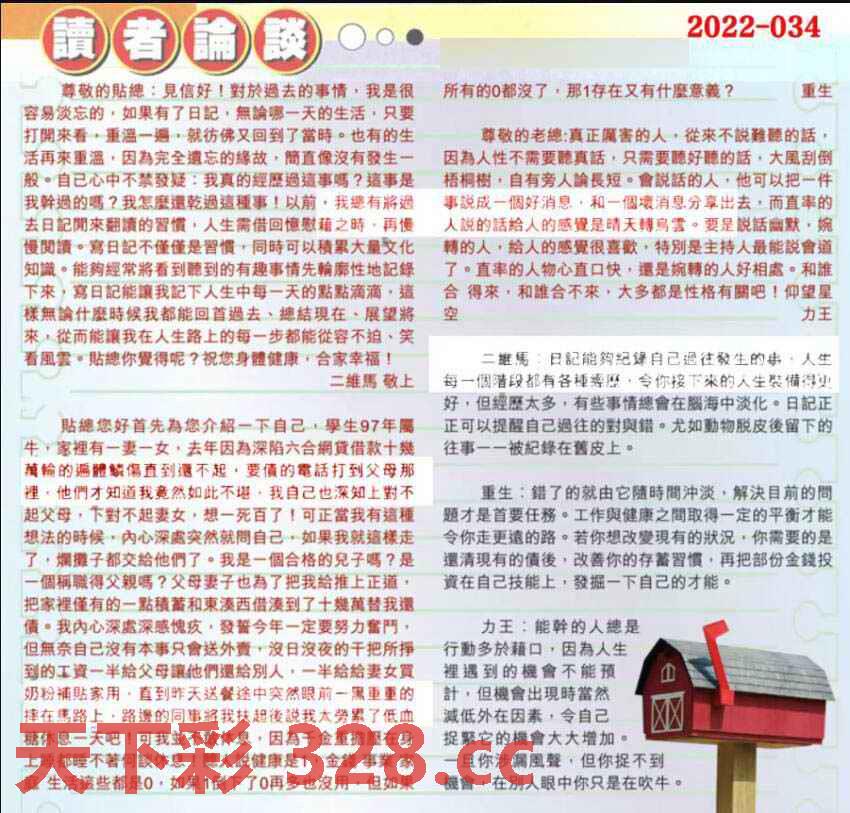 讀者論談
2022-034
尊敬的貼總：見信好！對於過去的事情，我是很
容易淡忘的，如果有了日記，無論哪一天的生活，只要
打開來看，重溫一遍，就彷佛又回到了當時。也有的生
活再來重溫，因為完全遺忘的緣故，簡直像沒有發生一
般。自己心中不禁發疑：我真的經歷過這事嗎？這事是
我幹過的嗎？我怎麼還乾過這種事！以前，我總有將過
去日記閒來翻讀的習慣，人生需借回憶慰藉之時，再慢
慢閱讀。寫日記不僅僅是習慣，同時可以積累大量文化
知識。能夠經常將看到聽到的有趣事情先輪廓性地記錄
下來，寫日記能讓我記下人生中每一天的點點滴滴，這
樣無論什麼時候我都能回首過去、總結現在、展望將
來，從而能讓我在人生路上的每一步都能從容不迫、笑
看風雲。貼總你覺得呢？祝您身體健康，合家幸福！
二維馬 敬上
貼總您好首先為您介紹一下自己，學生97年屬
牛，家裡有一妻一女，去年因為深陷六合網貸借款十幾
萬輸的遍體鱗傷直到還不起，要債的電話打到父母那
裡，他們才知道我竟然如此不堪，我自己也深知上對不
起父母，下對不起妻女，想一死百了！可正當我有這種
想法的時候，內心深處突然就問自己，如果我就這樣走
了，爛攤子都交給他們了。我是一個合格的兒子嗎？是
一個稱職得父親嗎？父母妻子也為了把我給推上正道，
把家裡僅有的一點積蓄和東湊西借湊到了十幾萬替我還
債。我內心深處深感愧疚，發誓今年一定要努力奮鬥，
但無奈自己沒有本事只會送外賣，沒日沒夜的干把所掙
到的工資一半給父母讓他們還給別人，一半給給妻女買
奶粉補貼家用，直到昨天送餐途中突然眼前一黑重重的
摔在馬路上，路邊的同事將我扶起後說我太勞累了低血
糖休息一天吧，可我並不敢休息，因為千金重擔壓在身
上
生活這些都是0，如果1倒下了0再多也沒用，但如果
所有的0都沒了，那1存在又有什麼意義？ 重生
尊敬的老總:真正厲害的人，從來不說難聽的話，
因為人性不需要聽真話，只需要聽好聽的話，大風刮倒
梧桐樹，自有旁人論長短。會說話的人，他可以把一件
事說成一個好消息，和一個壞消息分享出去，而直率的
人說的話給人的感覺是晴天轉烏雲。要是說話幽默，婉
轉的人，給人的感覺很喜歡，特別是主持人最能說會道
了。直率的人物心直口快，還是婉轉的人好相處。和誰
合 得來，和誰合不來，大多都是性格有關吧！仰望星
空 力王
二維馬：日記能夠紀錄自己過往發生的事，人生
每一個階段都有各種經歷，令你接下來的人生裝備得更
好，但經歷太多，有些事情總會在腦海中淡化。日記正
正可以提醒自己過往的對與錯。尤如動物脫皮後留下的
往事一一被紀錄在舊皮上。
重生：錯了的就由它隨時間沖淡，解決目前的問
題才是首要任務。工作與健康之間取得一定的平衡才能
令你走更遠的路。若你想改變現有的狀況，你需要的是
還清現有的債後，改善你的存蓄習慣，再把部份金錢投
資在自己技能上，發掘一下自己的才能。
力王：能幹的人總是
行動多於藉口，因為人生
裡遇到的機會不能預
計，但機會出現時當然
減低外在因素，令自己
捉緊它的機會大大增加。
一旦你涉漏風聲，但你捉不到
機會，在別人眼中你只是在吹牛。
天下彩 1328.cc